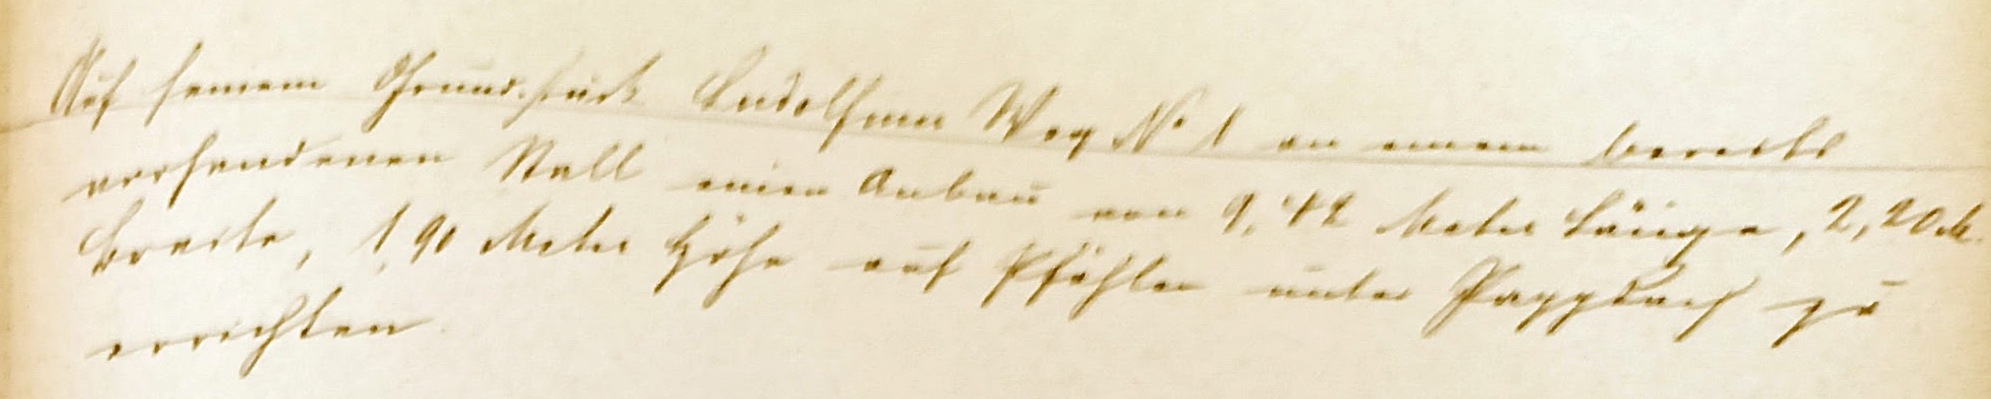 Auf seinem Grundstück Ludolfiner Weg No 1 an einem bereits
vorhandenen Stall einen Anbau von 9,42 Meter Länge, 2,20 M.
Breite, 1,90 Meter Höhe auf Pfählen unter Pappdach zu
errichten.